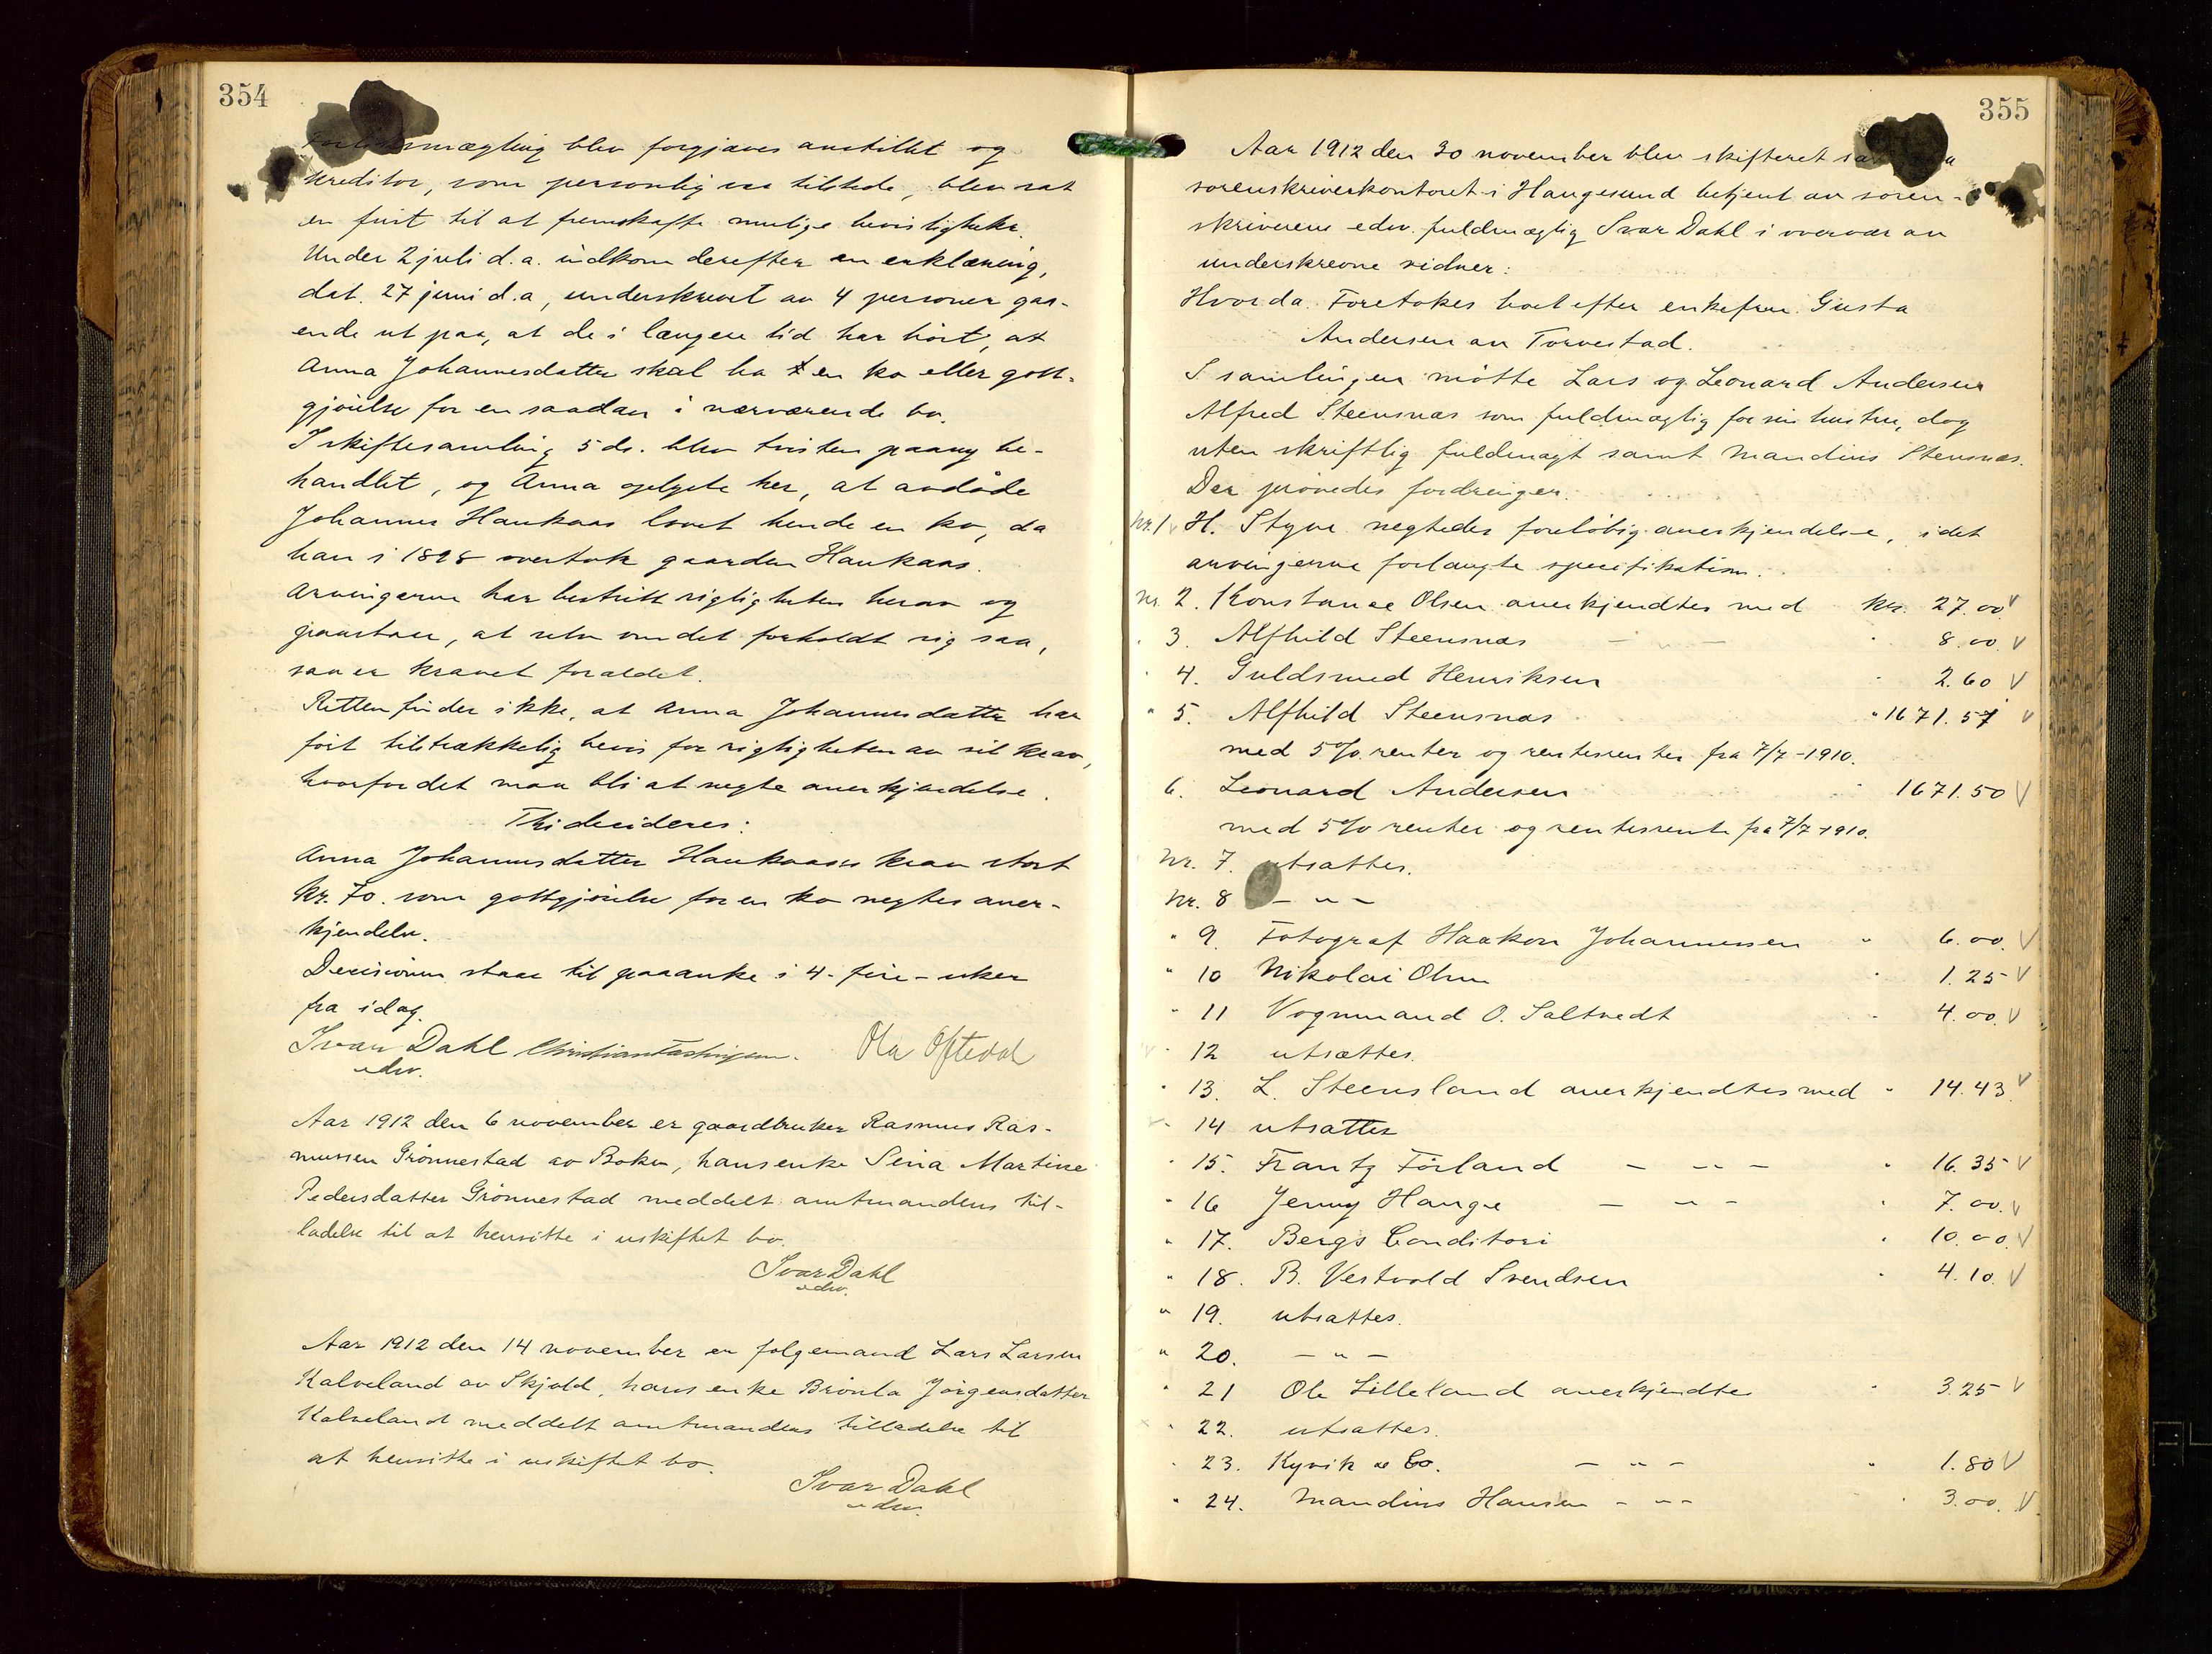 354
Forliksmægling blev forgjæves anstillet og
kreditor, som personlig var tilstede, blev sat
en frist til at fremskaffe mulige bevisligheter.
Under 2 juli d.a. indkom derefter en erklæring,
dat. 27 juni d.a, underskrevet av 4 personer gaa-
ende ut paa, at de i længere tid har hørt, at
Anna Johannesdatter skal ha en ko eller godt-
gjørelse for en saadan i nærværende bo.
I skiftesamling 5 ds. blev tvisten paany be-
handlet, og Anna oplyste her, at avdøde
Johannes Haukaas lovet hende en ko, da
han i 1898 overtok gaarden Haukaas.
Arvingerne har bestritt rigtigheten herav og
paastaar, at selv om det forholdt sig saa,
saa er kravet forældet.
Retten finder ikke, at Anna Johannesdatter har
ført tilstrækkelig bevis for rigtigheten av sit krav,
hvorfor det maa bli at negte anerkjendelse.
Thi decideres:
Anna Johannesdatter Haukaas's krav stort
kr. 70. som godtgjørelse for en ko negtes aner-
kjendelse.
Decisionen staar til paaanke i 4 - fire - uker
fra idag.
Ivar Dahl Ola Oftedal
edv.
Aar 1912 den 6 november er gaardbruker Rasmus Ras-
mussen Grønnestad av Bokn, hans enke Sina Martine
Pedersdatter Grønnestad meddelt amtmandens til-
ladelse til at hensitte i uskiftet bo.
Ivar Dahl
edv.
Aar 1912 den 14 november er følgemand Lars Larsen
Kalveland av Skjold, hans enke Brønla Jørgensdatter
Kalveland meddelt amtmandens tilladelse til
at hensitte i uskiftet bo.
Ivar Dahl
edv.
355
Aar 1912 den 30 november blev skifteret sat paa
sorenskriverkontoret i Haugesund betjent av soren-
skriverens edsv. fuldmægtig Ivar Dahl i overvær av
underskrevne vidner:
Hvorda. Foretokes boet efter enkefru Gusta
Andersen av Torvestad.
I samlingen møtte Lars og Leonard Andersen
Alfred Steensnæs som fuldmægtig for sin hustru, dog
uten skriftlig fuldmagt samt Mandius Stensnæs.
Der prøvedes fordringer.
Nr. 1 H. Styve negtedes foreløbig anerkjendelse, idet
arvingerne forlangte specifikation.
Nr. 2. Konstanse Olsen anerkjendtes med kr. 27.00 v
" 3. Alfhild Steensnæs — " — " 8.00 v
" 4. Guldsmed Henriksen " 2.60 v
" 5. Alfhild Steensnæs " 1671.57 v
med 5% renter og rentesrenter fra 7/7-1910.
6. Leonard Andersen " 1671.50 v
med 5% renter og rentesrente fra 7/7 1910.
Nr. 7. utsattes.
Nr. 8 — " —
" 9. Fotograf Haakon Johannessen " 6.00. v
" 10 Nikolai Olsen " 1.25 v
" 11 Vognmand O. Saltvedt " 4.00. v
" 12 utsættes.
" 13. L. Steensland anerkjendtes med " 14.43 v
" 14 utsattes
" 15. Frantz Førland — " — " 16.35 v
" 16 Jenny Hauge — " — " 7.00. v
" 17. Bergs Conditori " 10.00 v
" 18. B. Vestvold Svendsen " 4.10. v
" 19. utsattes.
" 20. — " —
" 21 Ole Lilleland anerkjendtes " 3.25 v
" 22. utsattes.
" 23. Kyvik & Co. — " — " 1.80 v
" 24. Mandius Hansen — " — " 3.00. v